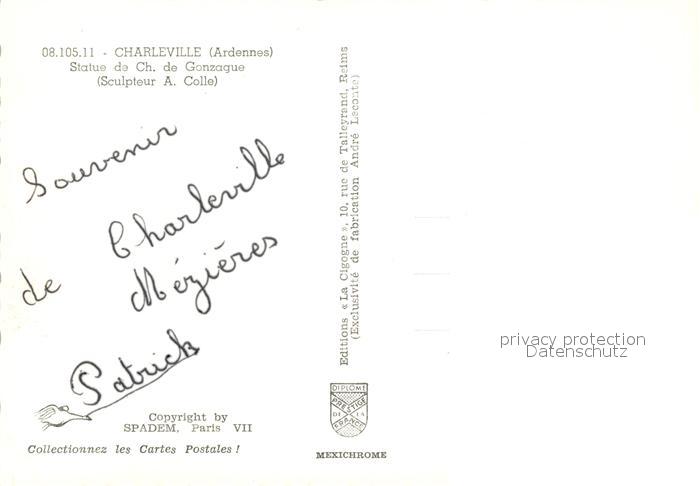 08.105.11 - CHARLEVILLE (Ardennes)
Statue de Ch. de Gonzague
(Sculpteur A. Colle)
Souvenir
de Charleville
Mézières
Patrick
Copyright by
SPADEM, Paris VII
Collectionnez les Cartes Postales !
Editions « La Cigogne », 10, rue de Talleyrand, Reims
(Exclusivité de fabrication André Leconte)
DIPLOME
PRESTIGE
DE LA
FRANCE
MEXICHROME
privacy protection
Datenschutz